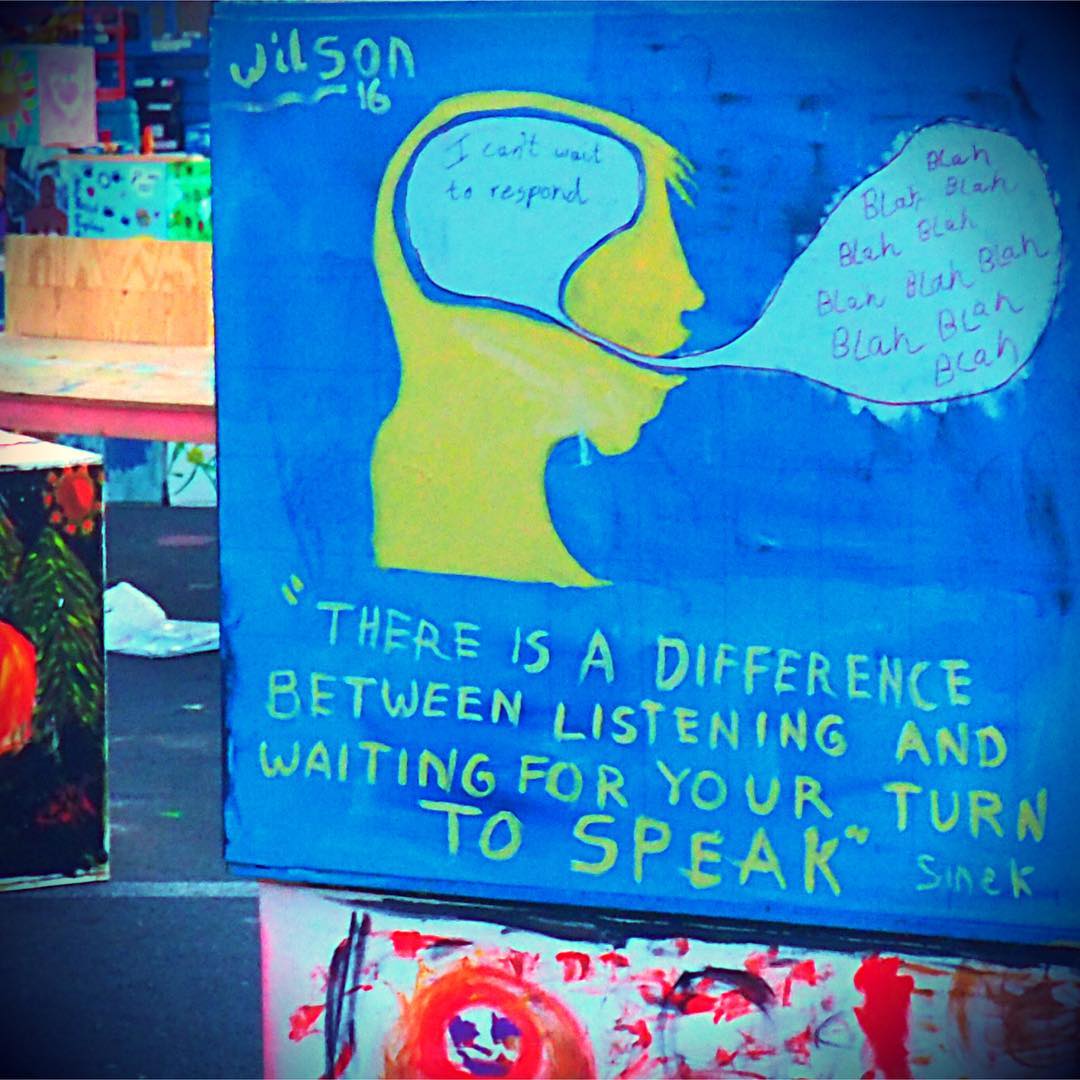 Wilson
16
I can't wait
to respond
Blah
Blah Blah
Blah Blah
Blah Blah Blah
Blah Blah
Blah
"THERE IS A DIFFERENCE
BETWEEN LISTENING AND
WAITING FOR YOUR TURN
TO SPEAK"
Sinek